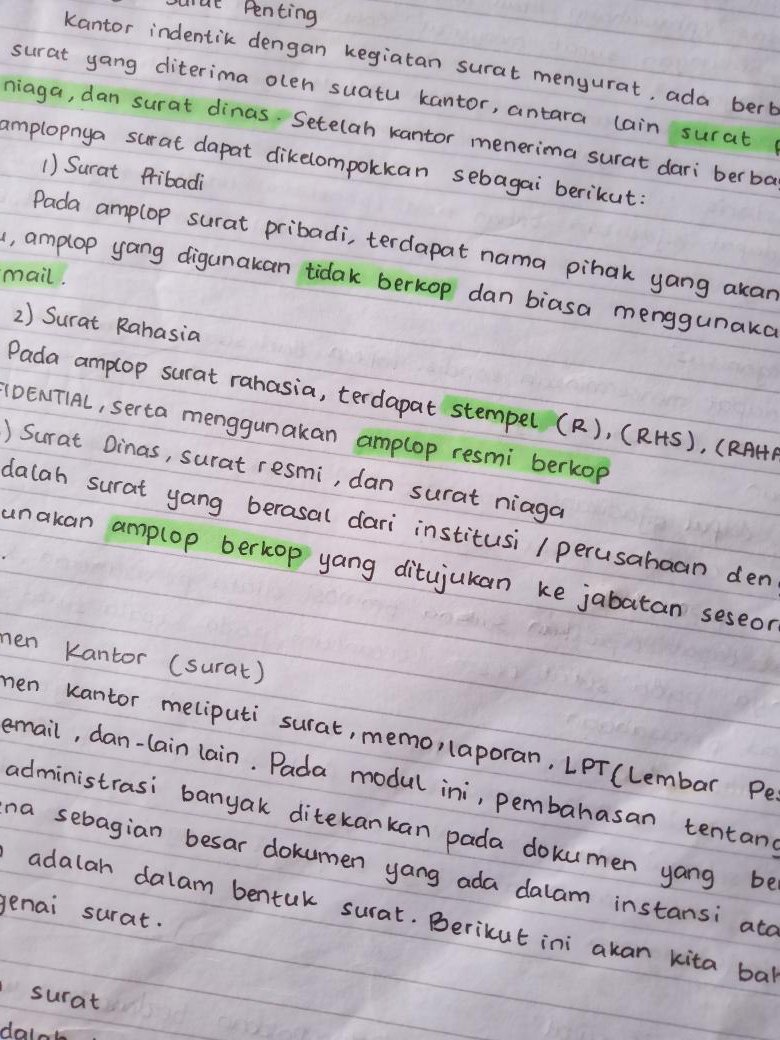 Penting
Kantor indentik dengan kegiatan surat menyurat. ada berb
surat yang diterima oleh suatu kantor, antara lain surat
niaga, dan surat dinas. Setelah kantor menerima surat dari berba
amplopnya surat dapat dikelompokkan sebagai berikut:
1) Surat Pribadi
Pada amplop surat pribadi, terdapat nama pihak yang akan
, amplop yang digunakan tidak berkop dan biasa menggunaka
mail.
2) Surat Rahasia
Pada amplop surat rahasia, terdapat stempel (R), (RHS), (RAHA
FIDENTIAL, serta menggunakan amplop resmi berkop
) Surat Dinas, surat resmi, dan surat niaga
dalah surat yang berasal dari institusi / perusahaan den
unakan amplop berkop yang ditujukan ke jabatan seseor
.
men Kantor (surat)
men kantor meliputi surat, memo, laporan, LPT (Lembar Pe
email, dan-lain lain. Pada modul ini, pembahasan tentang
administrasi banyak ditekankan pada dokumen yang be
ena sebagian besar dokumen yang ada dalam instansi ata
adalah dalam bentuk surat. Berikut ini akan kita bah
genai surat.
surat
dalah